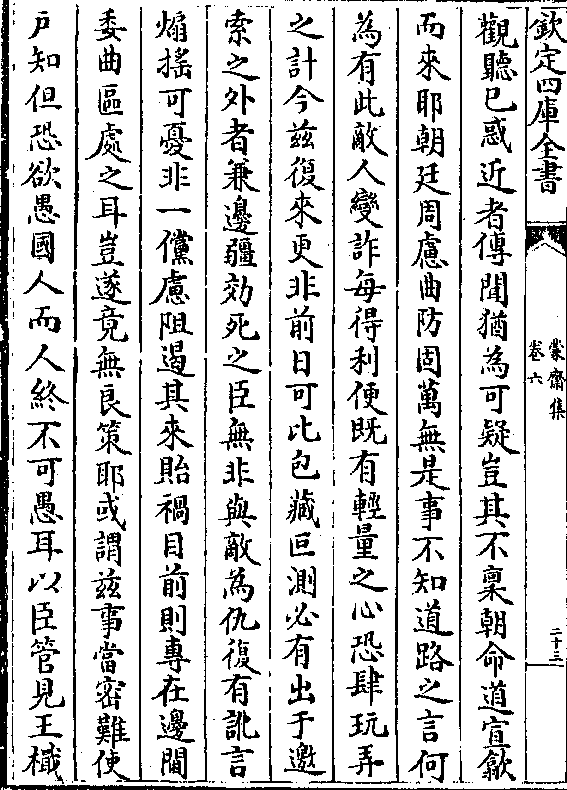 欽定四庫全書
蒙齋集
卷六
二十三
觀聽已惑近者傳聞猶為可疑豈其不稟朝命道宣歙
而來耶朝廷周慮曲防固萬無是事不知道路之言何
為有此敵人變詐每得利便既有輕量之心恐肆玩弄
之計今兹復來更非前日可比包藏叵測必有出于邀
索之外者兼邊疆効死之臣無非與敵為仇復有訛言
煽摇可憂非一儻慮阻遏其來貽禍目前則專在邊閫
委曲區處之耳豈遂竟無良策耶或謂兹事當密難使
戸知但恐欲愚國人而人終不可愚耳以臣管見王檝